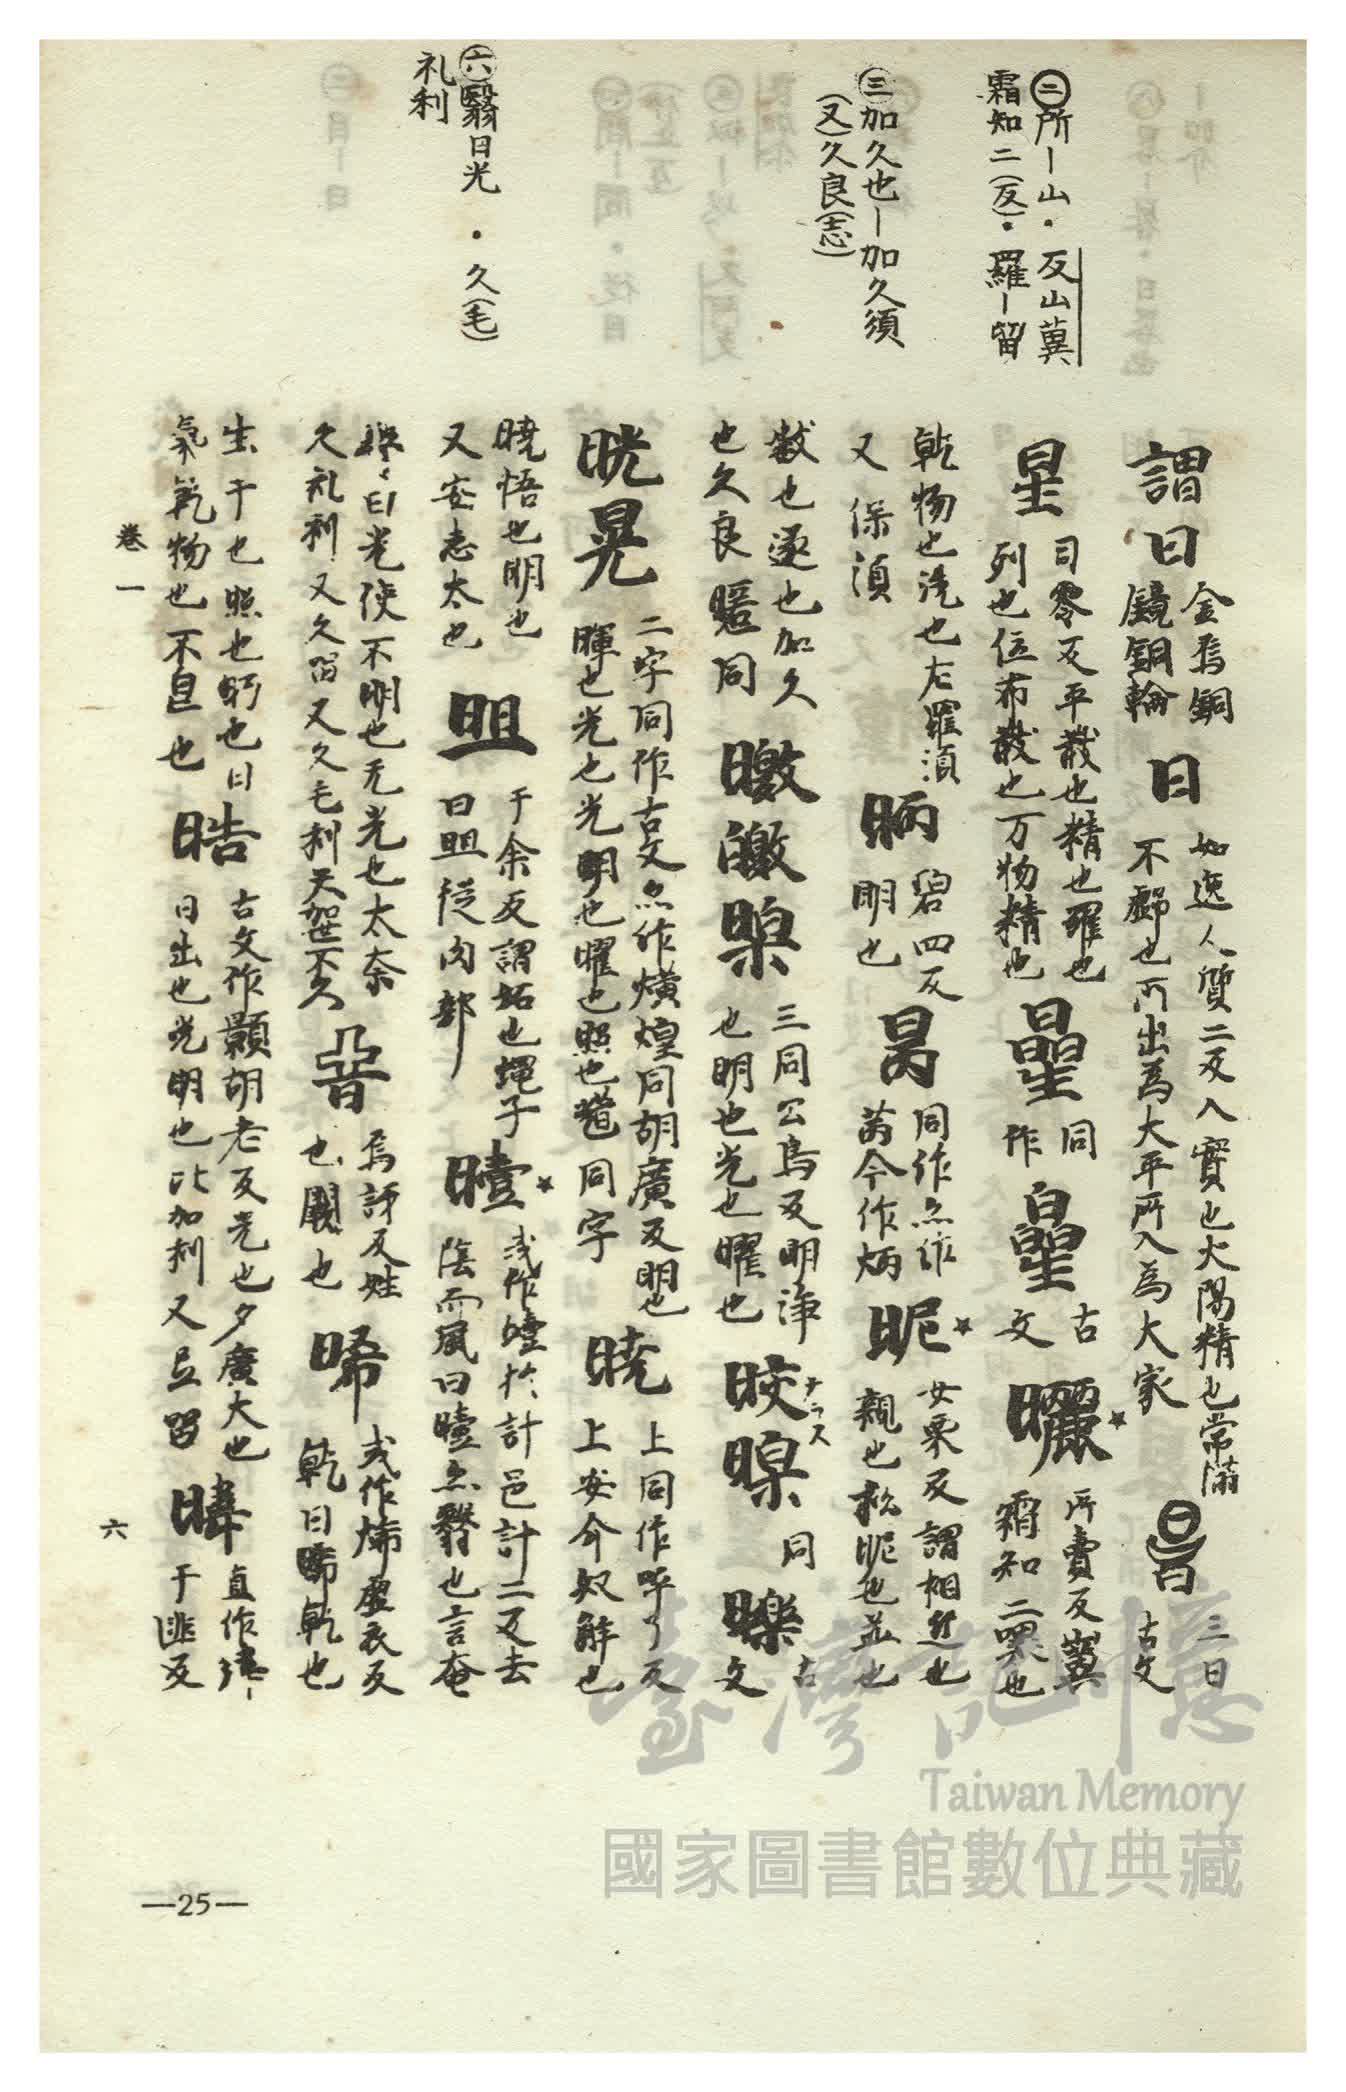 ㊁所ー山・反山蓂
霜知二(反)・羅ー留
㊂加久也ー加久須
(又)久良(志)
㊅翳日光・久(毛)
礼利
謂日 金烏銅
鏡銅輪
日 如逸人質二反入實也大陽精也常滿
不虧也所出為大平所入為大家
三日
古文
星 司零反平散也精也羅也
列也位布散也万物精也
曐 同
作
古
文
曬 所賣反蓂
霜知二也
乾物也洗也左羅湏
又保湏
昞 碧四反
明也
昺 同作亦作
苪今作炳
昵 女栗反謂相近也
親也私昵也並也
散也遂也加久
也久良 同
暾 三同公鳥反明淨
也明也光也曜也
晈 ナラス
同
古
文
晄晃 二字同作古文亦作爌煌同胡廣反明也
暉也光也光明也曜也照也 同字
暁 上同作呼了反
上安介奴解也
暁悟也明也
又安志太也
于余反謂垢也蠅子
曰 從肉部
曀 或作 於計邑計二反去
陰而風曰曀亦翳也言奄
日光使不明也无光也太奈
久礼利又久留又久毛利天
烏訝反姓
也 也
晞 或作烯虛衣反
乾曰晞乾也
生于也照也 也日
氣乾物也不 也
晧 古文作顥胡老反光也夕廣大也
日出也光明也比加利又 留
暐 直作
于匪反
卷一
六
—25—
臺灣記憶
Taiwan Memory
國家圖書館數位典藏